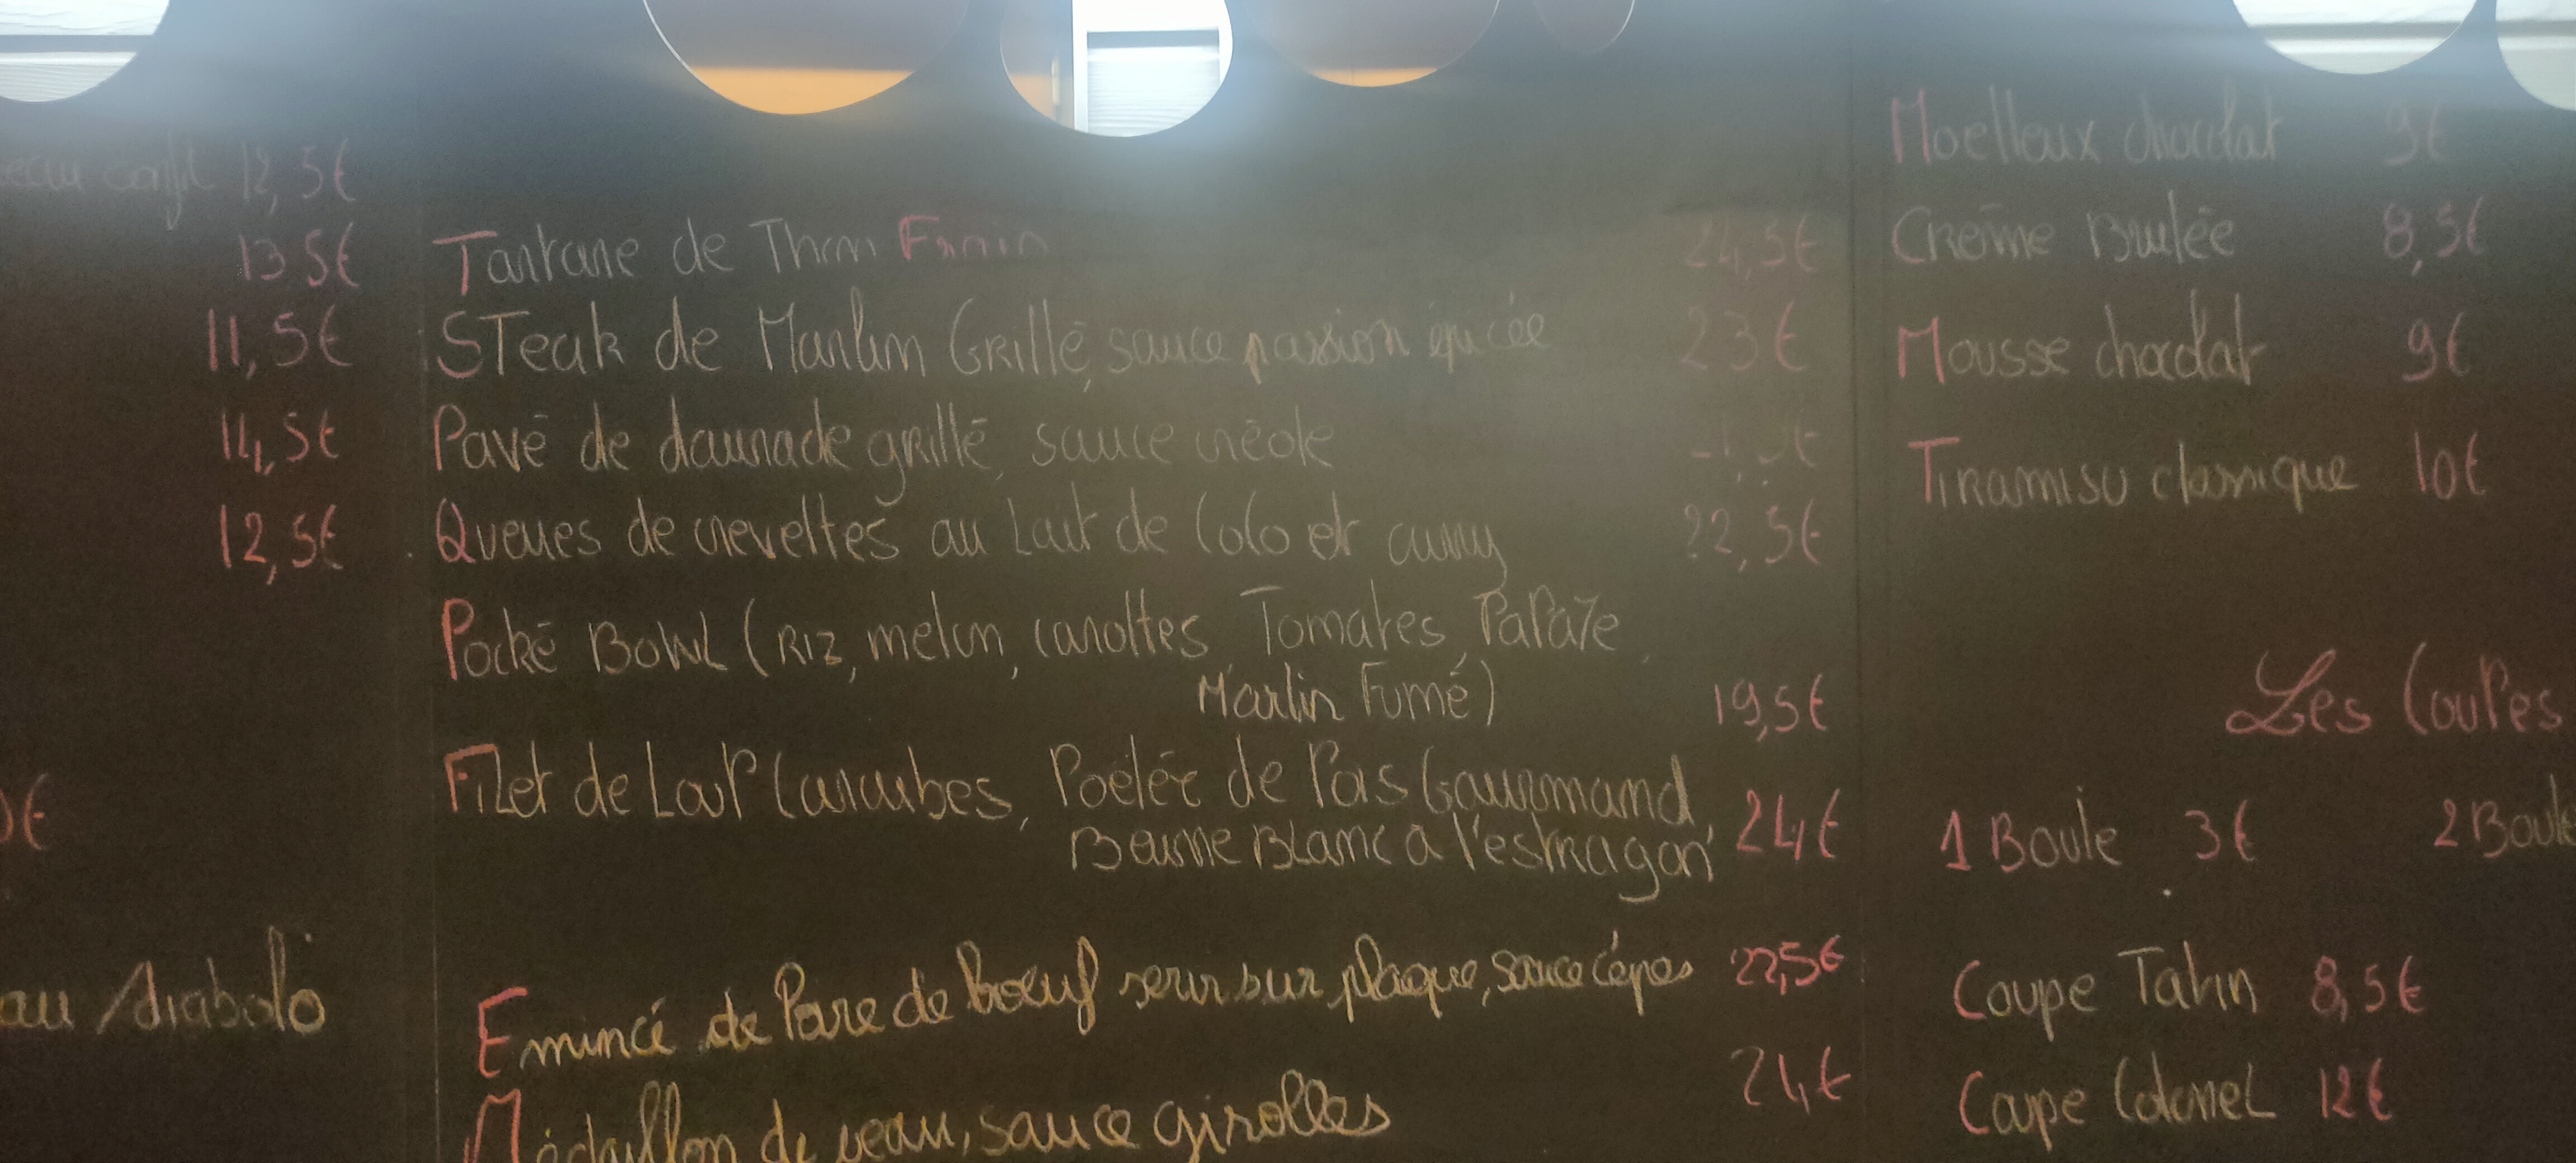 12,5€
13,5€
11,5€
14,5€
12,5€
au / diabolo
Tartare de Thon
24,5€
Steak de Marlin Grillé, sauce passion épicée
23€
Pavé de daurade grillé, sauce créole
Queues de crevettes au Lait de Coco et curry
22,5€
Pocké Bowl (Riz, melon, carottes, Tomates, Papaïe,
Marlin Fumé)
19,5€
Filet de Loup Caraïbes, Poêlée de Pois Gourmand,
Beurre Blanc à l'estragon
24€
Emincé de Poire de boeuf servi sur plaque, sauce cèpes
22,5€
Médaillon de veau, sauce girolles
24€
Moelleux chocolat 9€
Crème Brulée 8,5€
Mousse chocolat 9€
Tiramisu classique 10€
Les Coupes
1 Boule 3€ 2 Boule
Coupe Tahin 8,5€
Coupe Colonel 12€